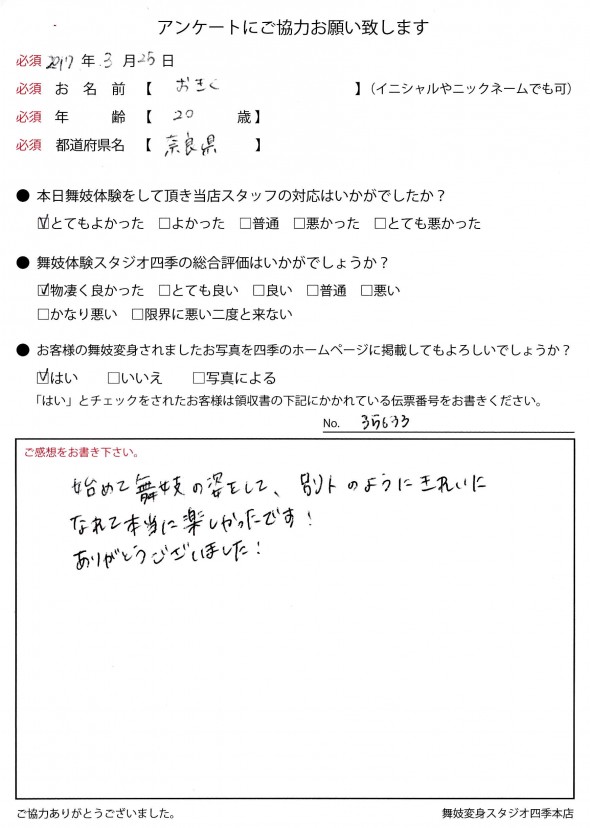 アンケートにご協力お願い致します
必須 2017 年 3 月 25 日
必須 お 名 前 【 おきく 】（イニシャルやニックネームでも可）
必須 年 齢 【 20 歳】
必須 都道府県名 【 奈良県 】
● 本日舞妓体験をして頂き当店スタッフの対応はいかがでしたか？
☑とてもよかった □よかった □普通 □悪かった □とても悪かった
● 舞妓体験スタジオ四季の総合評価はいかがでしょうか？
☑物凄く良かった □とても良い □良い □普通 □悪い
□かなり悪い □限界に悪い二度と来ない
● お客様の舞妓変身されましたお写真を四季のホームページに掲載してもよろしいでしょうか？
☑はい □いいえ □写真による
「はい」とチェックをされたお客様は領収書の下記にかかれている伝票番号をお書きください。
No. 35633
ご感想をお書き下さい。
始めて舞妓の姿をして、別人のようにきれいに
なれて本当に楽しかったです！
ありがとうございました！
ご協力ありがとうございました。 舞妓変身スタジオ四季本店